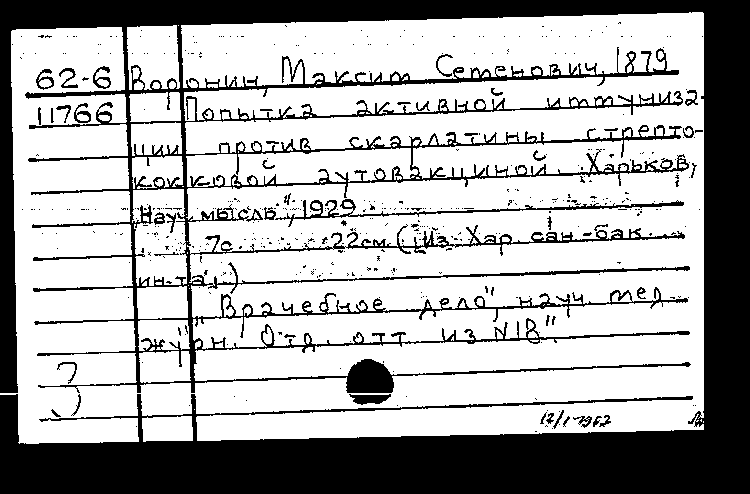 62-6 Воронин, Максим Семенович, 1879
11766 Попытка активной иммуниза-
ции против скарлатины стрепто-
кокковой аутовакциной. Харьков,
"Науч. мысль", 1929
7с. 22см. (Из Хар. сан-бак.
ин-та.)
"Врачебное дело", науч. мед.
журн. Отд. отт. из N18".
3
12/I-1962